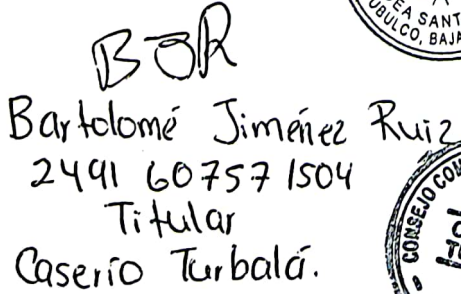 EA SANT
UBULCO, BAJA
BJR
Bartolomé Jiménez Ruiz
2491 60757 1504
Titular
Caserío Turbalá.
CONSEJO COM